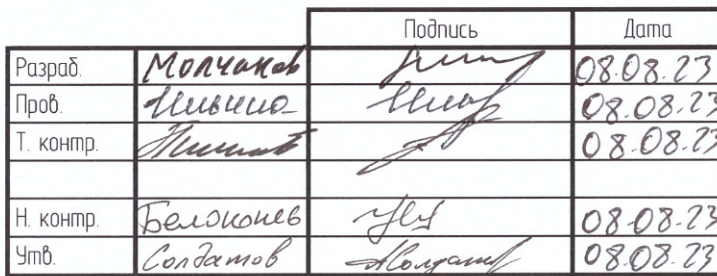 Подпись Дата
Разраб. Молчанов 08.08.23
Пров. 08.08.23
Т. контр. 08.08.23
Н. контр. Белоконев 08.08.23
Утв. Солдатов 08.08.23